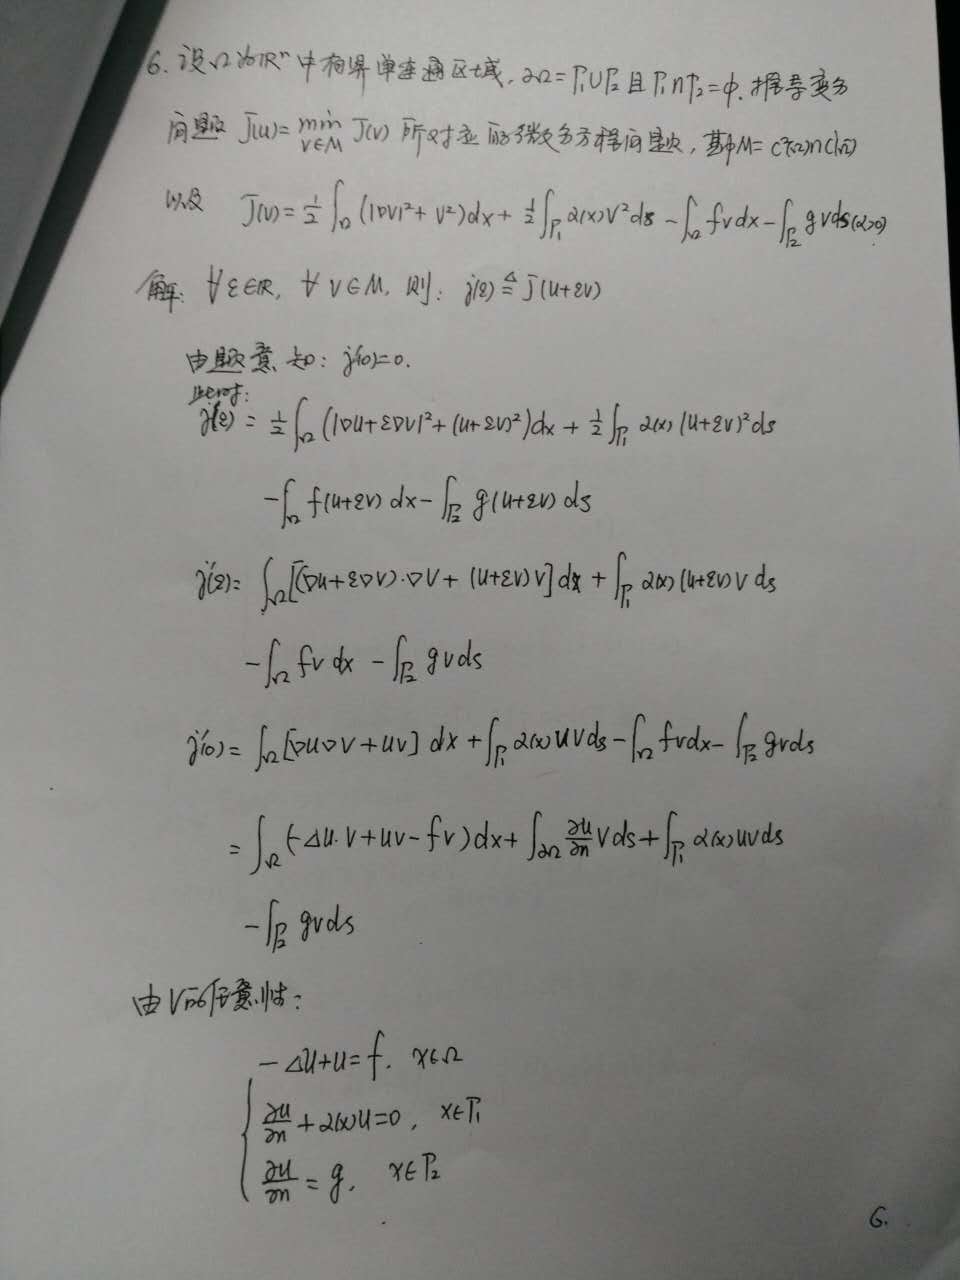 6. 设Ω为ℝⁿ中有界单连通区域, ∂Ω=Γ₁∪Γ₂ 且 Γ₁∩Γ₂=φ. 推导变分
问题 J(u)= min_{v∈M} J(v) 所对应的微分方程问题, 其中M= C²(Ω)∩C¹(Ω̄)
以及 J(v)= ½∫_Ω (|∇v|²+v²)dx + ½∫_{Γ₁} α(x)v²ds − ∫_Ω fvdx − ∫_{Γ₂} gvds(α>0)
解: ∀ε∈ℝ, ∀v∈M, 则: j(ε) ≜ J(u+εv)
由题意知: j'(0)=0.
此时:
j(ε) = ½∫_Ω (|∇u+ε∇v|²+(u+εv)²)dx + ½∫_{Γ₁} α(x)(u+εv)²ds
−∫_Ω f(u+εv)dx − ∫_{Γ₂} g(u+εv)ds
j'(ε)= ∫_Ω[(∇u+ε∇v)·∇v + (u+εv)v]dx + ∫_{Γ₁} α(x)(u+εv)v ds
−∫_Ω fv dx − ∫_{Γ₂} gvds
j'(0) = ∫_Ω[∇u∇v+uv] dx + ∫_{Γ₁} α(x)uvds − ∫_Ω fvdx − ∫_{Γ₂} gvds
= ∫_Ω (−Δu·v+uv−fv)dx + ∫_{∂Ω} ∂u/∂n vds + ∫_{Γ₁} α(x)uvds
−∫_{Γ₂} gvds
由v的任意性:
−Δu+u=f. x∈Ω
∂u/∂n + α(x)u=0, x∈Γ₁
∂u/∂n = g. x∈Γ₂
6.